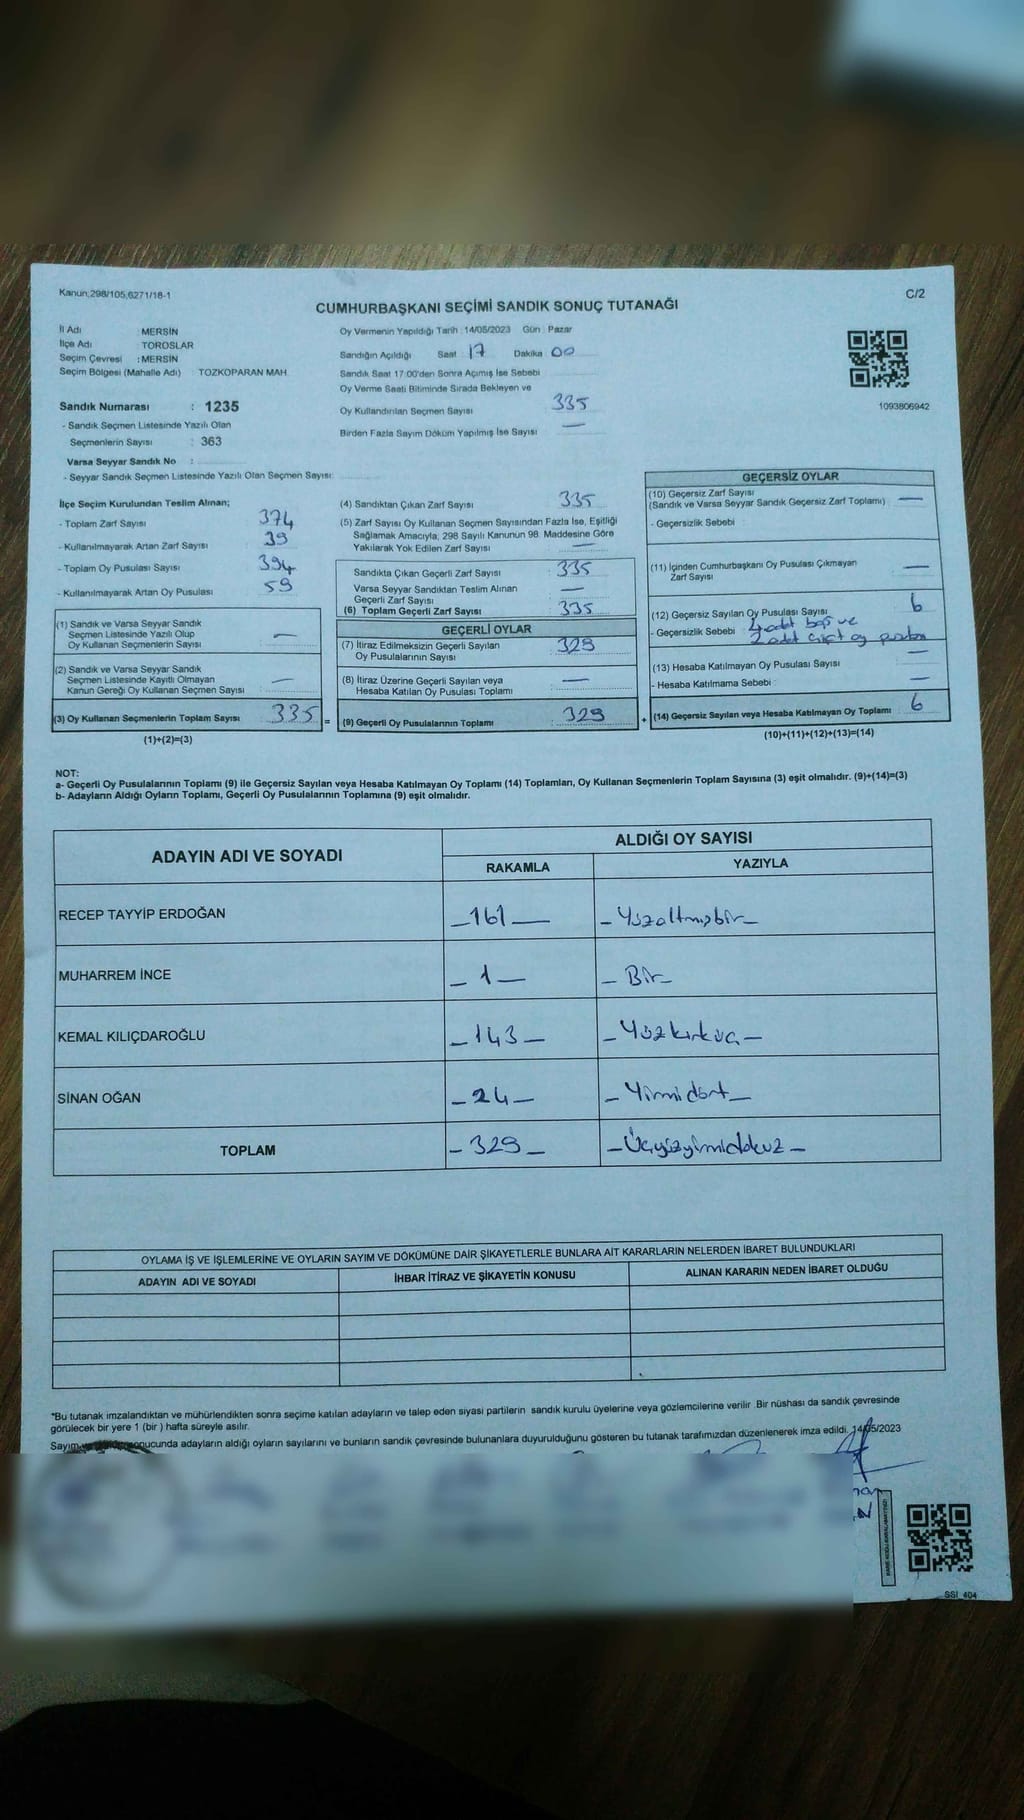 Kanun:298/105,6271/18-1
C/2
CUMHURBAŞKANI SEÇİMİ SANDIK SONUÇ TUTANAĞI
İl Adı : MERSİN
İlçe Adı : TOROSLAR
Seçim Çevresi : MERSİN
Seçim Bölgesi (Mahalle Adı) : TOZKOPARAN MAH.
Sandık Numarası : 1235
- Sandık Seçmen Listesinde Yazılı Olan
Seçmenlerin Sayısı : 363
Varsa Seyyar Sandık No :
- Seyyar Sandık Seçmen Listesinde Yazılı Olan Seçmen Sayısı:
Oy Vermenin Yapıldığı Tarih : 14/05/2023 Gün : Pazar
Sandığın Açıldığı Saat : 17 Dakika : 00
Sandık Saat 17:00'den Sonra Açımış İse Sebebi
Oy Verme Saati Bitiminde Sırada Bekleyen ve
Oy Kullandırılan Seçmen Sayısı 335
Birden Fazla Sayım Döküm Yapılmış İse Sayısı : —
1093806942
İlçe Seçim Kurulundan Teslim Alınan;
- Toplam Zarf Sayısı 374
- Kullanılmayarak Artan Zarf Sayısı 39
- Toplam Oy Pusulası Sayısı 394
- Kullanılmayarak Artan Oy Pusulası 59
(1) Sandık ve Varsa Seyyar Sandık
Seçmen Listesinde Yazılı Olup
Oy Kullanan Seçmenlerin Sayısı —
(2) Sandık ve Varsa Seyyar Sandık
Seçmen Listesinde Kayıtlı Olmayan
Kanun Gereği Oy Kullanan Seçmen Sayısı —
(3) Oy Kullanan Seçmenlerin Toplam Sayısı 335 =
(1)+(2)=(3)
(4) Sandıktan Çıkan Zarf Sayısı 335
(5) Zarf Sayısı Oy Kullanan Seçmen Sayısından Fazla İse, Eşitliği
Sağlamak Amacıyla, 298 Sayılı Kanunun 98. Maddesine Göre
Yakılarak Yok Edilen Zarf Sayısı —
Sandıkta Çıkan Geçerli Zarf Sayısı 335
Varsa Seyyar Sandıktan Teslim Alınan
Geçerli Zarf Sayısı —
(6) Toplam Geçerli Zarf Sayısı 335
GEÇERLİ OYLAR
(7) İtiraz Edilmeksizin Geçerli Sayılan
Oy Pusulalarının Sayısı 329
(8) İtiraz Üzerine Geçerli Sayılan veya
Hesaba Katılan Oy Pusulası Toplamı —
(9) Geçerli Oy Pusulalarının Toplamı 329 +
GEÇERSİZ OYLAR
(10) Geçersiz Zarf Sayısı
(Sandık ve Varsa Seyyar Sandık Geçersiz Zarf Toplamı) —
- Geçersizlik Sebebi
(11) İçinden Cumhurbaşkanı Oy Pusulası Çıkmayan
Zarf Sayısı —
(12) Geçersiz Sayılan Oy Pusulası Sayısı 6
- Geçersizlik Sebebi 4 adet boş ve
2 adet çift oy pusulası
(13) Hesaba Katılmayan Oy Pusulası Sayısı —
- Hesaba Katılmama Sebebi : —
(14) Geçersiz Sayılan veya Hesaba Katılmayan Oy Toplamı 6
(10)+(11)+(12)+(13)=(14)
NOT:
a- Geçerli Oy Pusulalarının Toplamı (9) ile Geçersiz Sayılan veya Hesaba Katılmayan Oy Toplamı (14) Toplamları, Oy Kullanan Seçmenlerin Toplam Sayısına (3) eşit olmalıdır. (9)+(14)=(3)
b- Adayların Aldığı Oyların Toplamı, Geçerli Oy Pusulalarının Toplamına (9) eşit olmalıdır.
ADAYIN ADI VE SOYADI
ALDIĞI OY SAYISI
RAKAMLA YAZIYLA
RECEP TAYYİP ERDOĞAN –161— –Yüzaltmışbir–
MUHARREM İNCE –1– –Bir–
KEMAL KILIÇDAROĞLU –143– –Yüzkırküç–
SİNAN OĞAN –24– –Yirmidört–
TOPLAM –329– –Üçyüzyirmidokuz–
OYLAMA İŞ VE İŞLEMLERİNE VE OYLARIN SAYIM VE DÖKÜMÜNE DAİR ŞİKAYETLERLE BUNLARA AİT KARARLARIN NELERDEN İBARET BULUNDUKLARI
ADAYIN ADI VE SOYADI İHBAR İTİRAZ VE ŞİKAYETİN KONUSU ALINAN KARARIN NEDEN İBARET OLDUĞU
*Bu tutanak imzalandıktan ve mühürlendikten sonra seçime katılan adayların ve talep eden siyasi partilerin sandık kurulu üyelerine veya gözlemcilerine verilir .Bir nüshası da sandık çevresinde
görülecek bir yere 1 (bir ) hafta süreyle asılır.
Sayım sonucunda adayların aldığı oyların sayılarını ve bunların sandık çevresinde bulunanlara duyurulduğunu gösteren bu tutanak tarafımızdan düzenlenerek imza edildi. 14/05/2023
SSİ 404